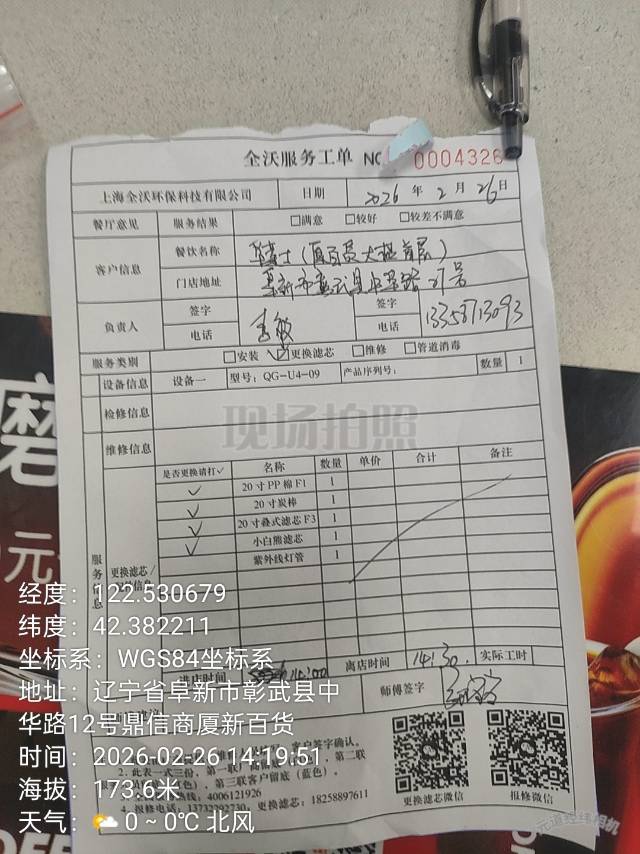 全沃服务工单 NO 0004326
上海全沃环保科技有限公司 日期 2026年2月26日
餐厅意见 服务结果 □满意 □较好 □较差不满意
客户信息 餐饮名称
门店地址
负责人 签字 签字
电话 电话 13358713093
服务类别 □安装 ☑更换滤芯 □维修 □管道消毒
设备信息 设备一 型号：QG-U4-09 产品序列号： 数量 1
检修信息
现场拍照
维修信息
是否更换请打✓ 名称 数量 单价 合计 备注
✓ 20寸PP棉F1 1
✓ 20寸炭棒 1
✓ 20寸叠式滤芯F3 1
✓ 小白熊滤芯 1
紫外线灯管 1
服务信息
更换滤芯/
进店时间 离店时间 14:30 实际工时
师傅签字
客户签字确认。
2. 此表一式三份，第一联
第三联客户留底（蓝色）。
4006121926
4. 报修电话：13732292730，更换滤芯：18258897611
更换滤芯微信 报修微信
经度：122.530679
纬度：42.382211
坐标系：WGS84坐标系
地址：辽宁省阜新市彰武县中
华路12号鼎信商厦新百货
时间：2026-02-26 14:19:51
海拔：173.6米
天气：0～0℃ 北风
元道经纬相机
磨